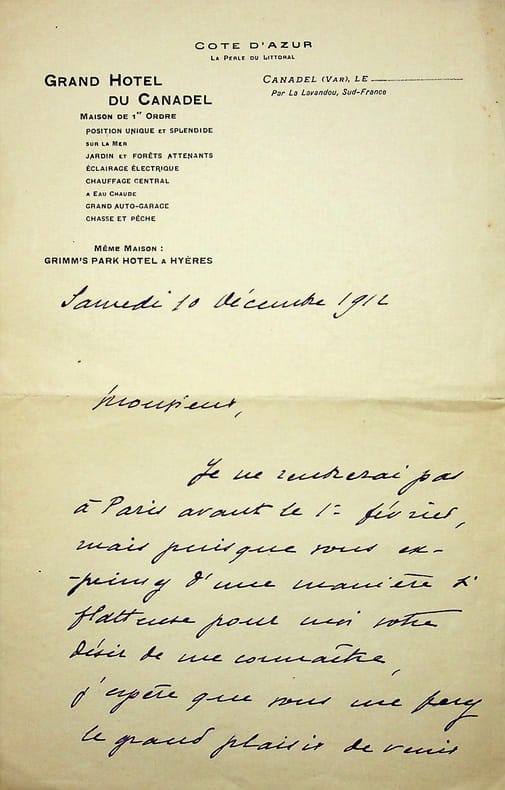 COTE D'AZUR
LA PERLE DU LITTORAL
GRAND HOTEL
DU CANADEL
MAISON DE 1er ORDRE
POSITION UNIQUE ET SPLENDIDE
SUR LA MER
JARDIN ET FORÊTS ATTENANTS
ÉCLAIRAGE ÉLECTRIQUE
CHAUFFAGE CENTRAL
A EAU CHAUDE
GRAND AUTO-GARAGE
CHASSE ET PÊCHE
MÊME MAISON :
GRIMM'S PARK HOTEL A HYÈRES
CANADEL (VAR), LE
Par La Lavandou, Sud-France
Samedi 10 Décembre 1912
Monsieur,
Je ne rentrerai pas
à Paris avant le 1er février,
mais puisque vous ex-
-primez d'une manière si
flatteuse pour moi votre
désir de me connaître,
j'espère que vous me ferez
le grand plaisir de venir